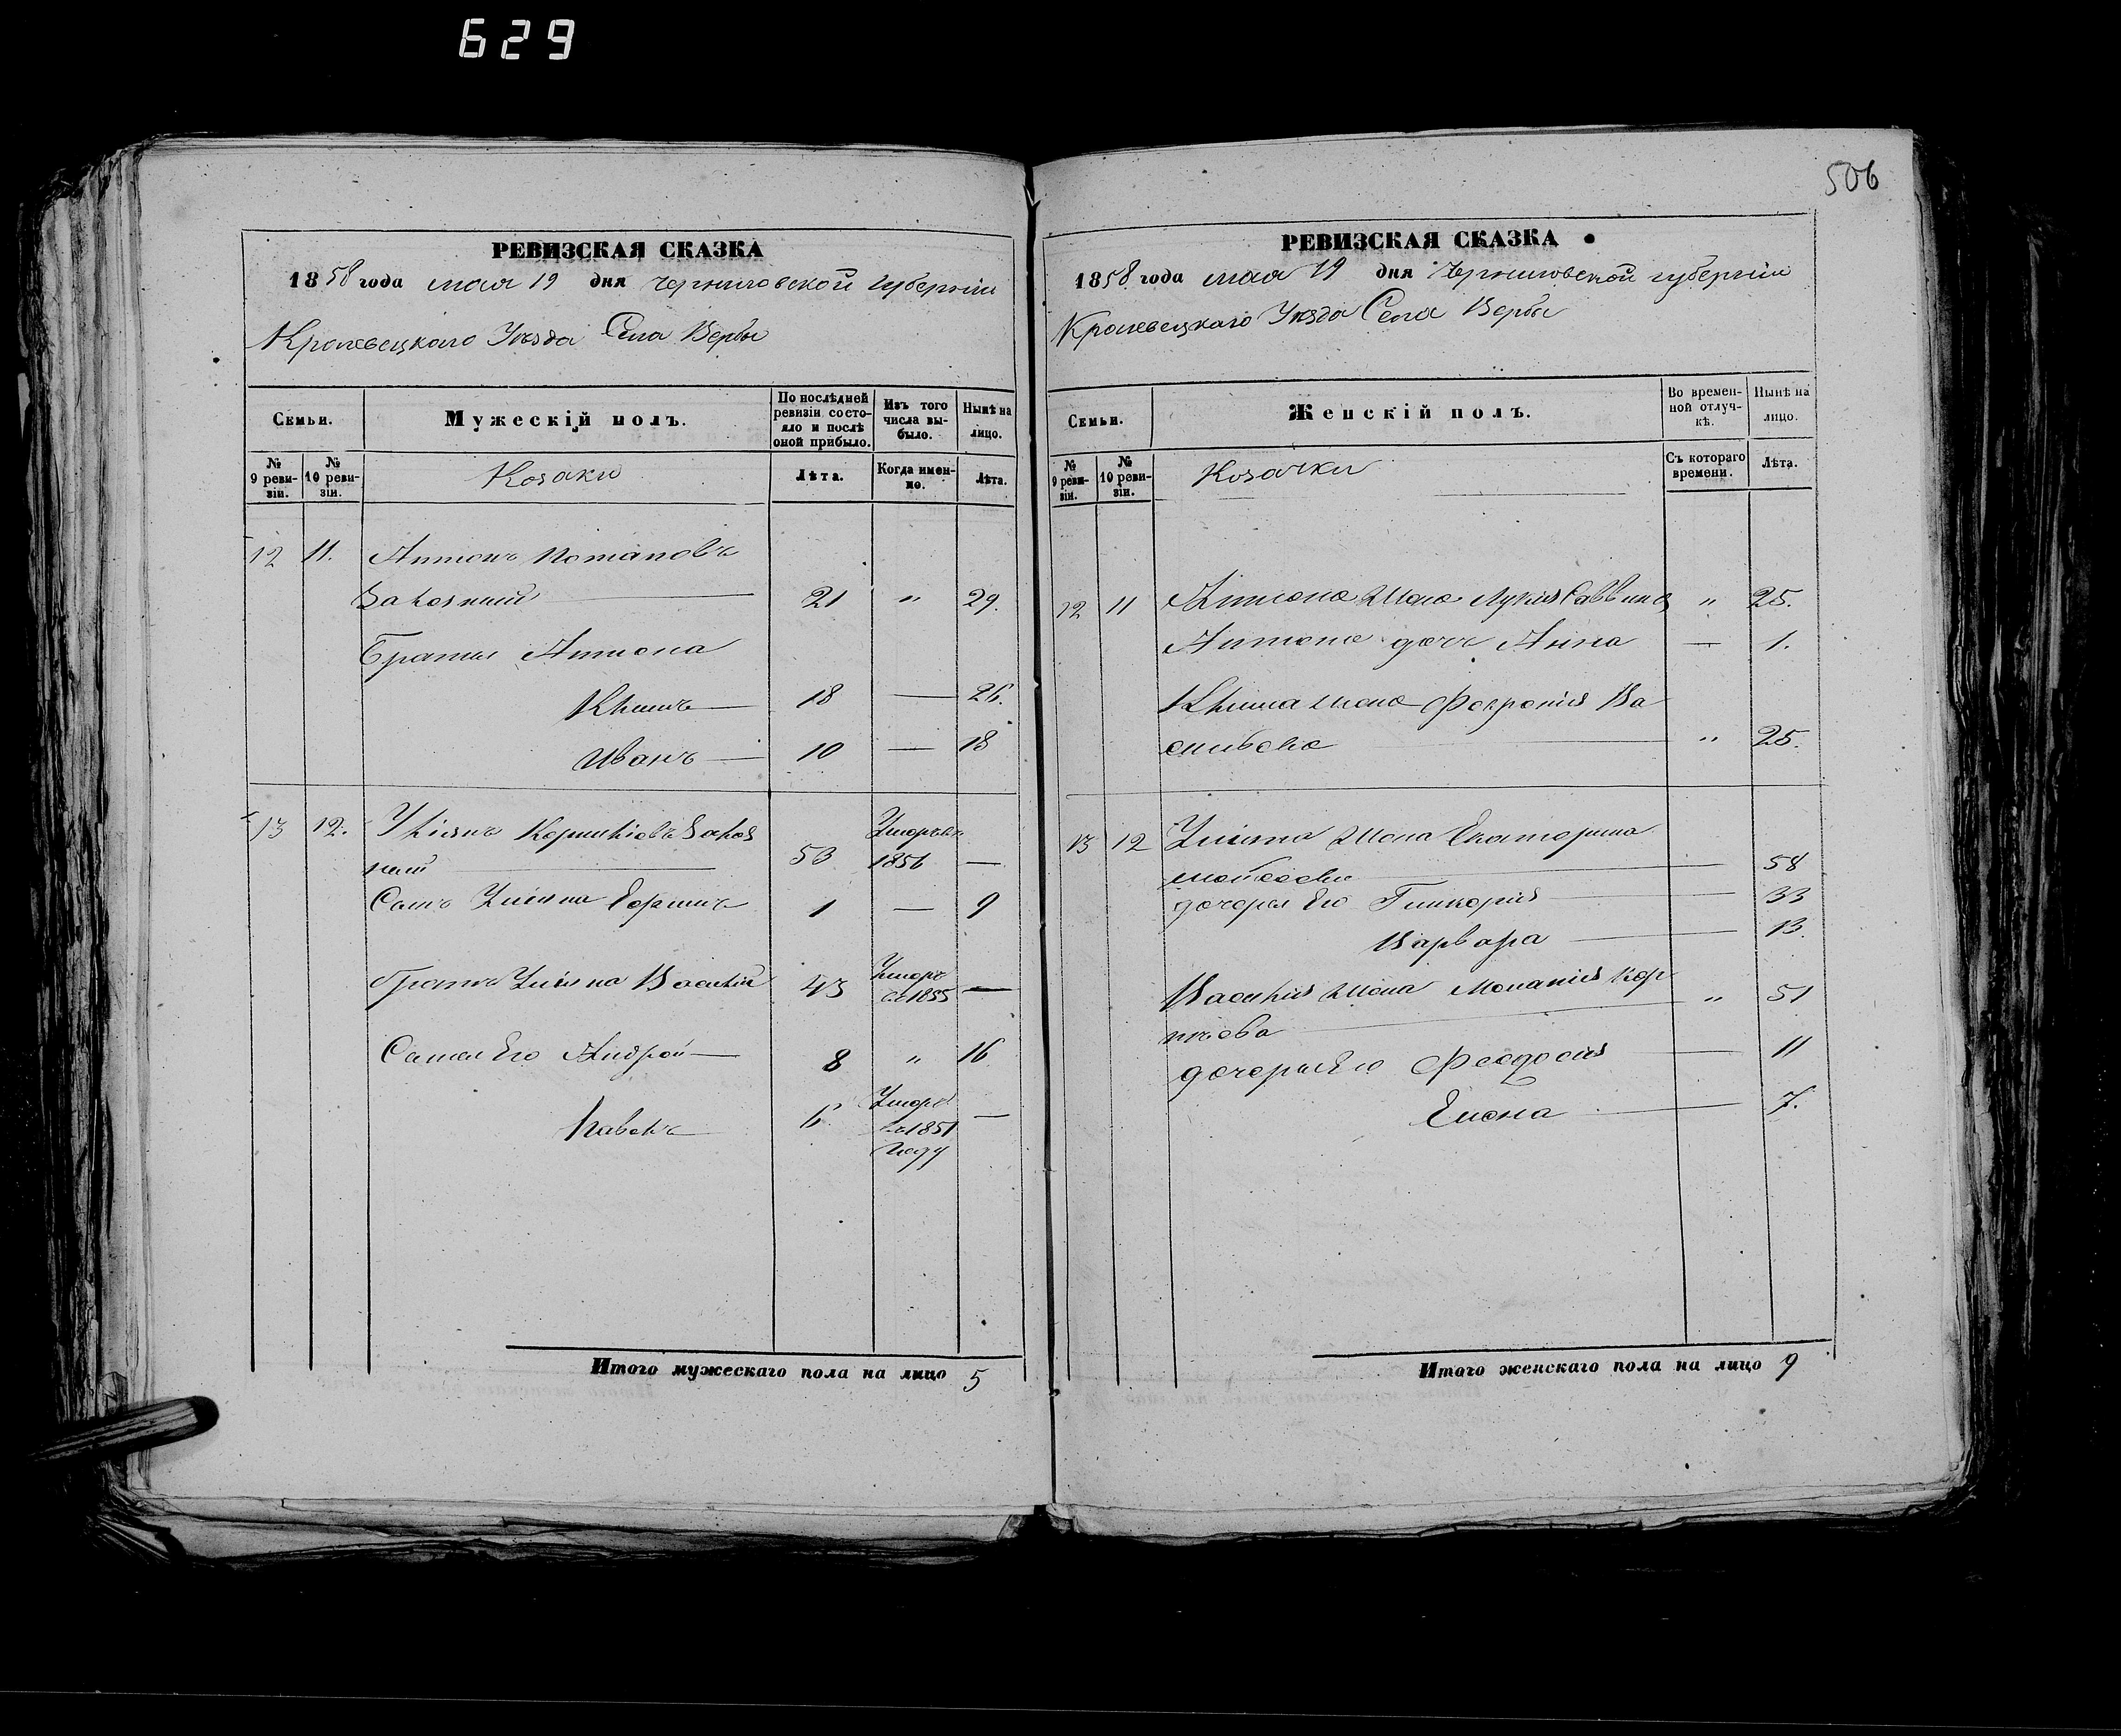 629
506
РЕВИЗСКАЯ СКАЗКА
1858 года мая 19 дня Черниговской губернии
Кролевецкаго Уезда Села Вербы
Семьи.
Мужескій полъ.
По послѣдней ревизіи состояло и послѣ оной прибыло.
Изъ того числа выбыло.
Нынѣ на лицо.
№ 9 ревизіи.
№ 10 ревизіи.
Козаки
Лѣта.
Когда именно.
Лѣта.
12 11. Антонъ Потаповъ
21 " 29.
Братья Антона
Климъ 18 — 26.
Иванъ 10 — 18
13 12. Уліянъ
53 1856 —
Сынъ Уліяна Ефимъ 1 — 9
братъ Уліяна Василій 45 Умеръ
въ 1855 —
Сыновья Его Андрей 8 " 16
Павелъ 6 Умеръ
въ 1851 —
году
Итого мужескаго пола на лицо 5
РЕВИЗСКАЯ СКАЗКА
1858 года мая 19 дня Черниговской губернии
Кролевецкаго Уезда Села Вербы
Семьи.
Женскій полъ.
Во временной отлучкѣ.
Нынѣ на лицо.
№ 9 ревизіи.
№ 10 ревизіи.
Козачки
Съ котораго времени.
Лѣта.
12 11 Антона жена Лукія Саввина " 25.
Антона дочь Анна — 1.
Клима жена Феврония Ва
сильева " 25.
13 12 Уліяна жена Екатерина
58
дочери Его Гликерия 33
Варвара 13.
Василия жена Мелания Кор
нѣева " 51
дочери Его Феодосия 11
Елена 7.
Итого женскаго пола на лицо 9